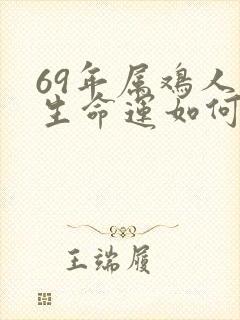 69年属鸡人
生命运如何
王端履